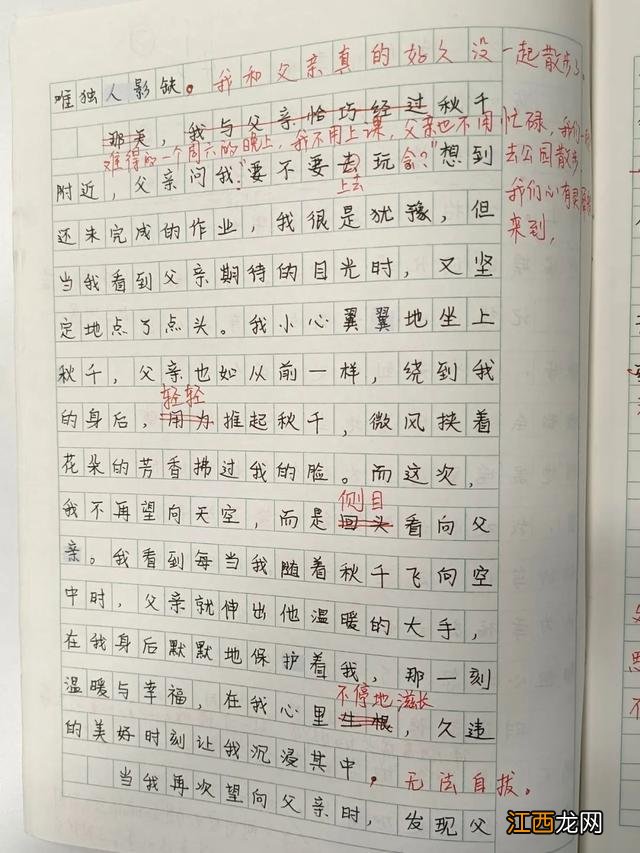 唯独人影缺。我和父亲真的好久没一起散步了。
那天,我与父亲恰巧经过秋千
难得的一个周六的晚上,我不用上课,父亲也不用忙碌,我们一
去公园散步,
我们心有灵
来到,
附近,父亲问我:"要不要去玩会?"想到
上去
还未完成的作业,我很是犹豫,但
当我看到父亲期待的目光时,又坚
定地点了点头。我小心翼翼地坐上
秋千,父亲也如从前一样,绕到我
轻轻
的身后,用力推起秋千,微风挟着
花朵的芳香拂过我的脸。而这次,
侧目
我不再望向天空,而是回头看向父
亲。我看到每当我随着秋千飞向空
中时,父亲就伸出他温暖的大手,
在我身后默默地保护着我,那一刻
不停地滋长
温暖与幸福,在我心里生根,久违
的美好时刻让我沉浸其中,无法自拔。
当我再次望向父亲时,发现父
江西龙网